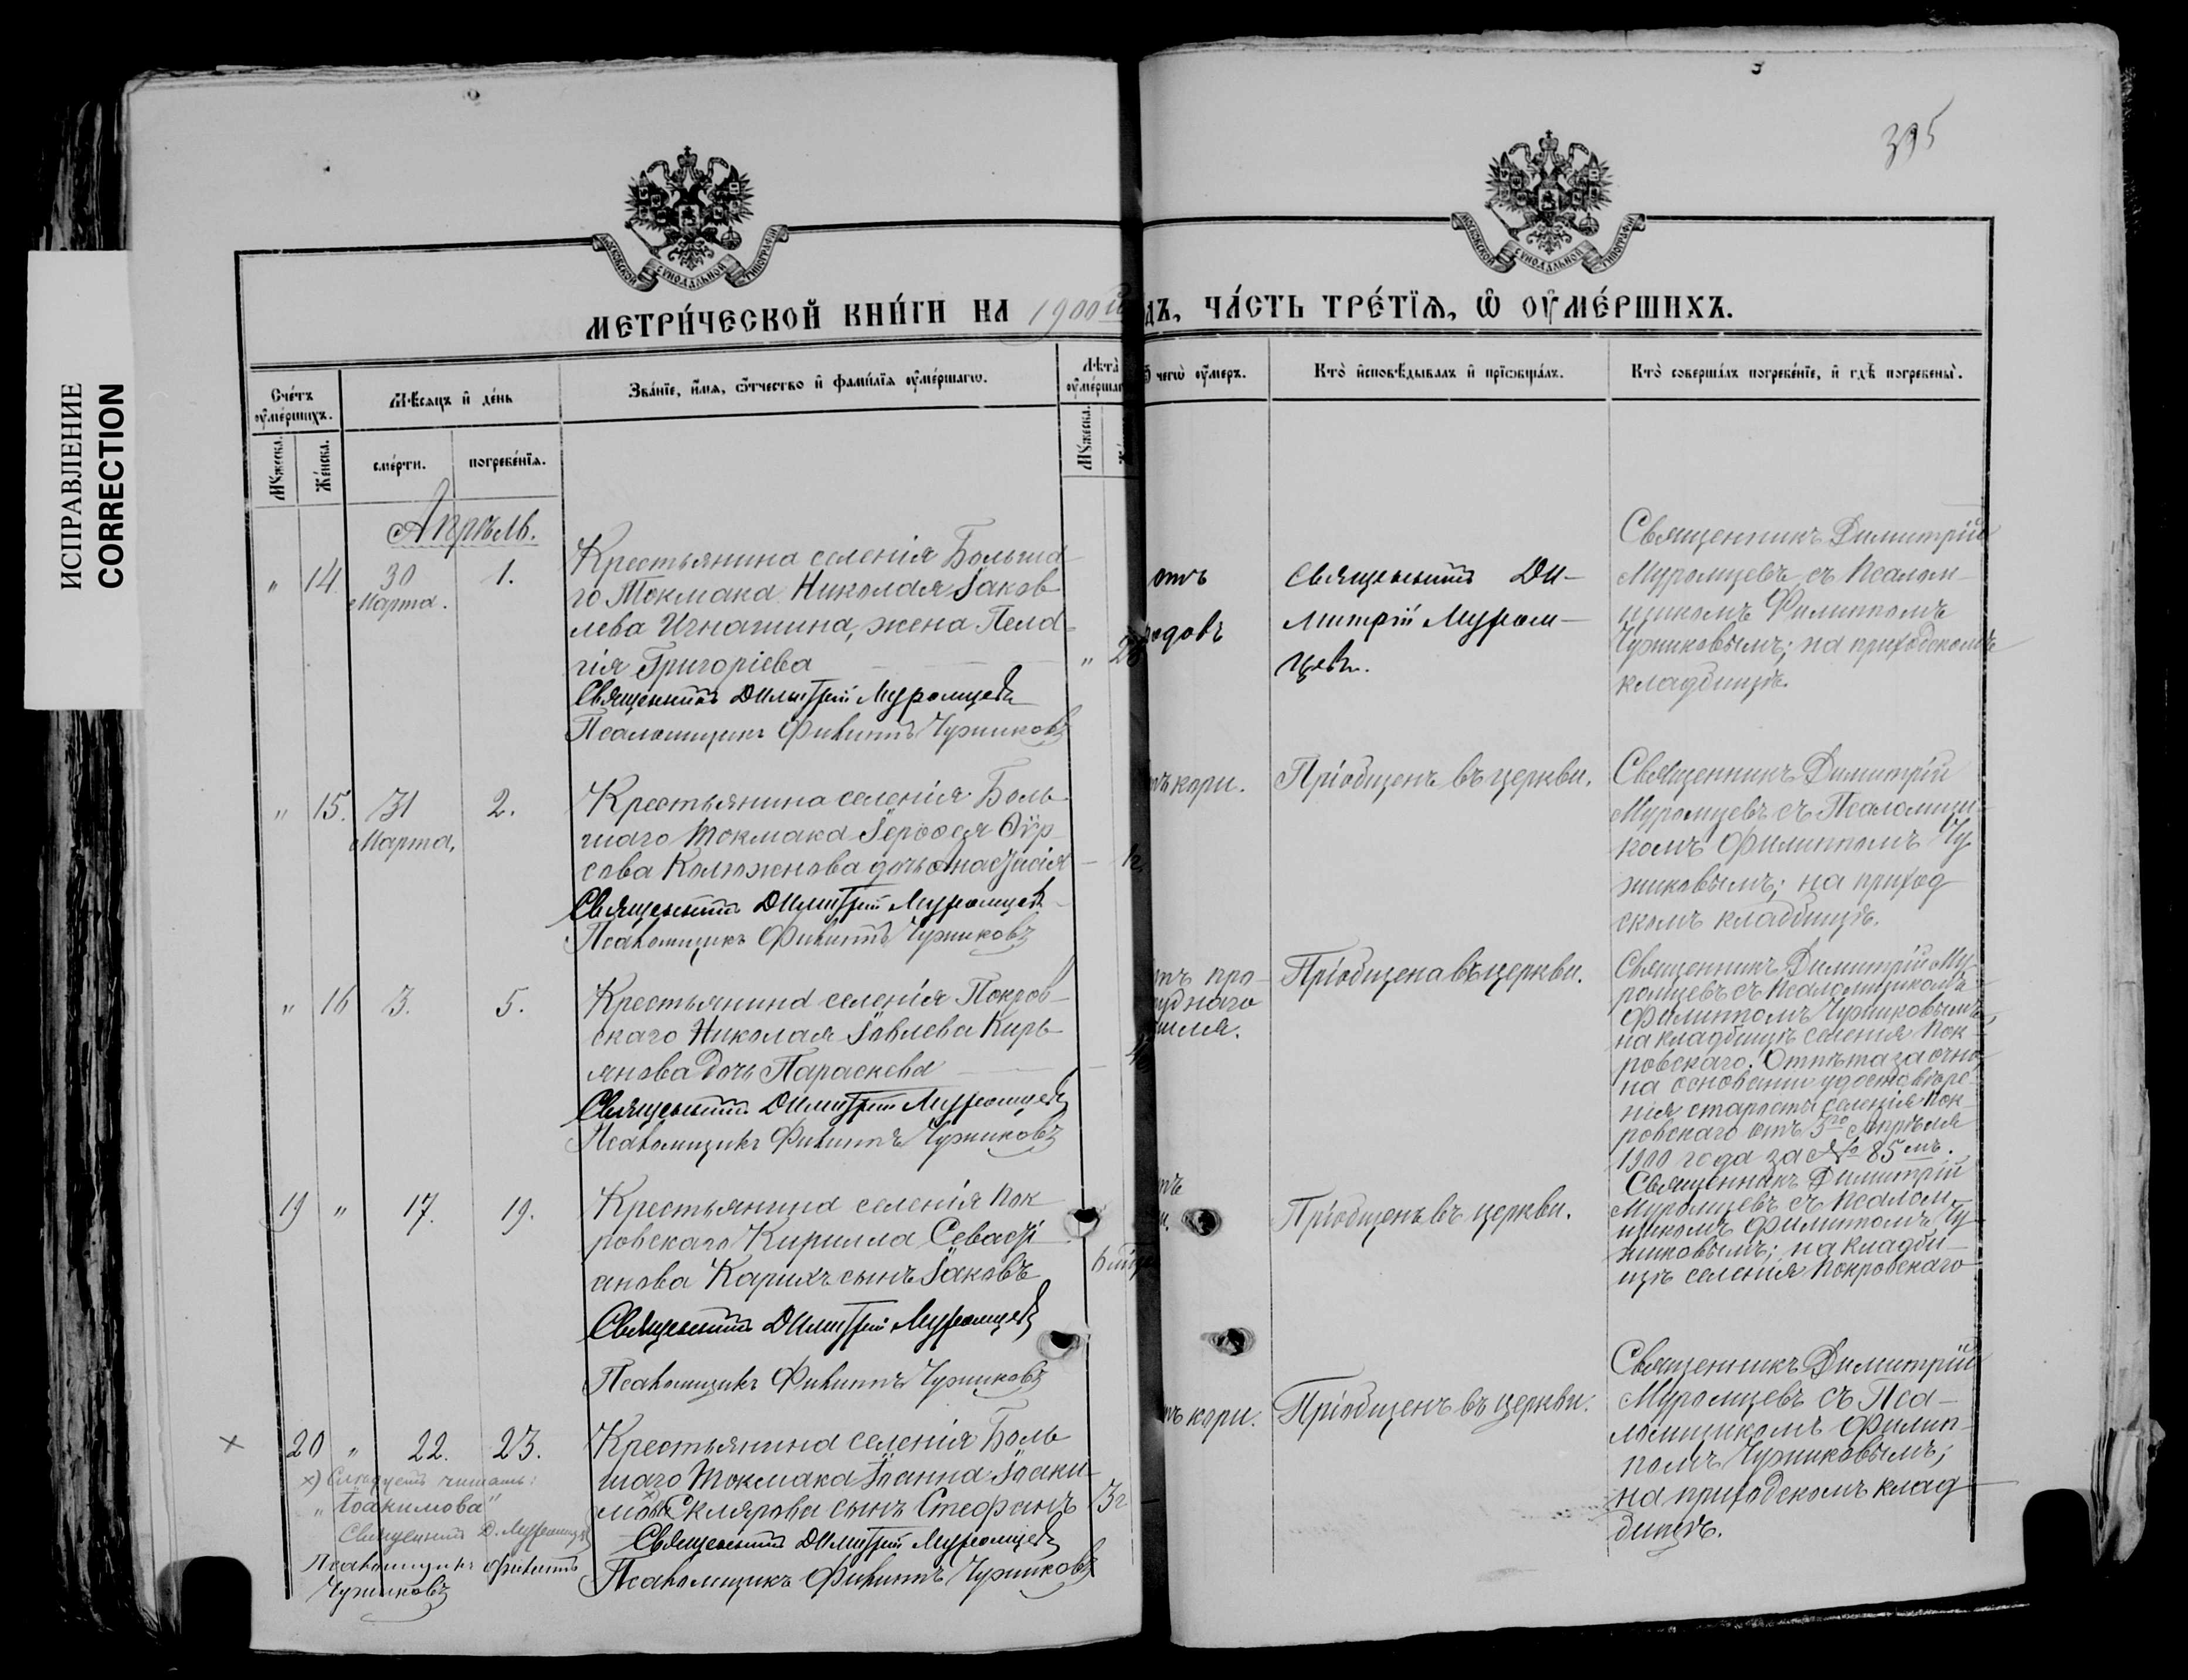 395
ИСПРАВЛЕНИЕ
CORRECTION
МОСКОВСКОЙ СѴНОДАЛЬНОЙ ТИПОГРАФІИ
МОСКОВСКОЙ СѴНОДАЛЬНОЙ ТИПОГРАФІИ
МЕТРИ́ЧЕСКОЙ КНИ́ГИ НА 1900ый
дъ, ЧА́СТЬ ТРЕ́ТЇѦ, Ѡ҆ ОУ҆МЕ́РШИХЪ.
Сче́тъ
оу҆ме́ршихъ.
Мꙋжеска.
Же́нска.
Мѣ́сяцъ и҆ де́нь
сме́рти.
погребе́нїѧ.
Зва́нїе, и҆́мѧ, ѻ҆́тчество и҆ фами́лїѧ оу҆ме́ршагѡ.
Лѣ́та
оу҆ме́ршаг
Мꙋжеска.
чегѡ̀ оу҆́меръ.
Кто̀ и҆сповѣ́дывалъ и҆ прїѡбща́лъ.
Кто̀ соверша́лъ погребе́нїе, и҆ гдѣ̀ погребены̀.
Апрѣль.
" 14 30
Марта.
1.
Крестьянина селенія Больша-
го Токмака Николая Іаков
лева Игнашина, жена Пела-
гія Григоріева
"
Священникъ Димитрій Муромцевъ
Псаломщикъ Филиппъ Чужиковъ
отъ
родовъ
Священникъ Ди-
митрій Муром-
цевъ.
Священникъ Димитрій
Муромцевъ съ Псалом-
щикомъ Филиппомъ
Чужиковымъ; на приходскомъ
кладбищѣ.
" 15. 31
Марта,
2.
Крестьянина селенія Боль-
шаго Токмака Іероѳея Ѳир-
сова дочь Анастасія
Священникъ Димитрій Муромцевъ
Псаломщикъ Филиппъ Чужиковъ
тъ кори.
Пріобщенъ въ церкви.
Священникъ Димитрій
Муромцевъ съ Псаломщи-
комъ Филиппомъ Чу-
жиковымъ; на приход-
скомъ кладбищѣ.
" 16 3. 5.
Крестьянина селенія Покров-
скаго Николая Іовлева Кирь-
янова дочь Параскева
Священникъ Димитрій Муромцевъ
Псаломщикъ Филиппъ Чужиковъ
тъ про-
уднаго
шля.
Пріобщена въ церкви.
Священникъ Димитрій Му-
ромцевъ съ Псаломщикомъ
Филиппомъ Чужиковымъ;
на кладбищѣ селенія Пок-
ровскаго. Отпѣта заочно
на основаніи удостовѣре-
нія старосты селенія Пок-
ровскаго отъ 5го Апрѣля
1900 года за № 85мъ.
19 " 17. 19.
Крестьянина селенія Пок-
ровскаго Кирилла Севасті-
анова сынъ Іаковъ
Священникъ Димитрій Муромцевъ
Псаломщикъ Филиппъ Чужиковъ
Пріобщенъ въ церкви.
Священникъ Димитрій
Муромцевъ съ Псалом-
щикомъ Филиппомъ Чу-
жиковымъ; на кладби-
щѣ селенія Покровскаго
× 20 " 22. 23.
Крестьянина селенія Боль-
шаго Токмака Іоанна Іоаки-
мова Склярова сынъ Стефанъ 3г
Священникъ Димитрій Муромцевъ
Псаломщикъ Филиппъ Чужиковъ
тъ кори.
Пріобщенъ въ церкви.
Священникъ Димитрій
Муромцевъ съ Пса-
ломщикомъ Филип-
помъ Чужиковымъ;
на приходскомъ клад-
бищѣ.
×) Слѣдуетъ читать:
„Іоакимова"
Священникъ Д. Муромцевъ
Псаломщикъ Филиппъ
Чужиковъ